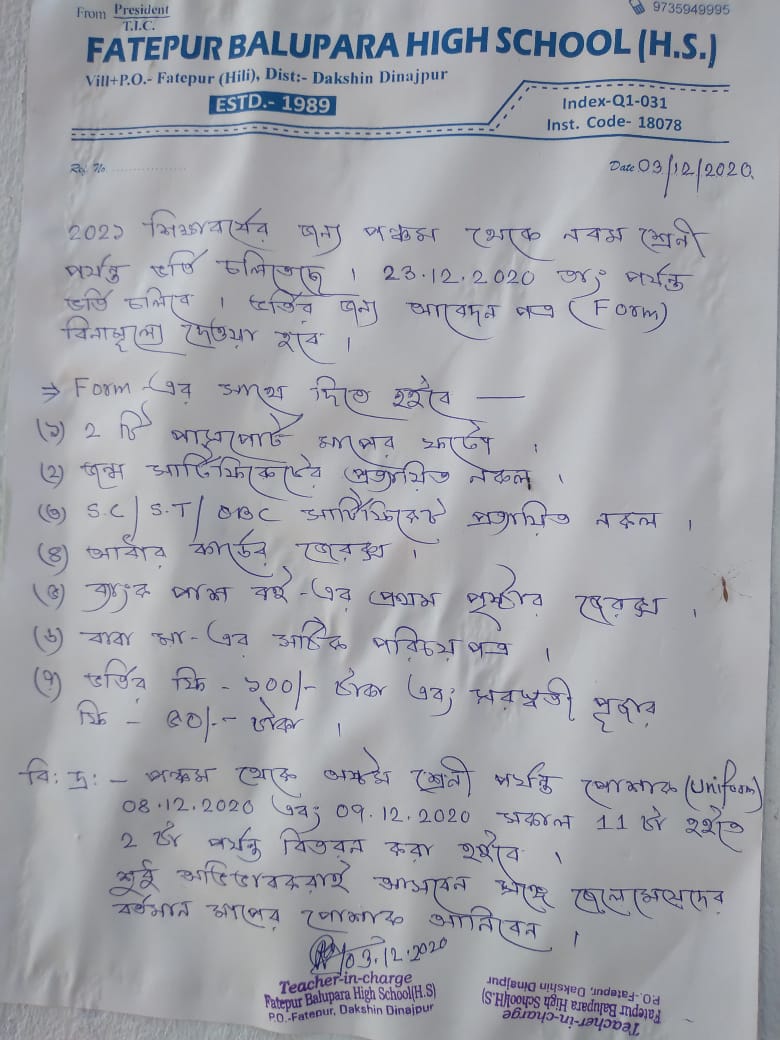 From President
T.I.C.
9735949995
FATEPUR BALUPARA HIGH SCHOOL (H.S.)
Vill+P.O.- Fatepur (Hili), Dist:- Dakshin Dinajpur
ESTD.- 1989
Index-Q1-031
Inst. Code- 18078
Ref. No.
Date 03/12/2020.
2021 শিক্ষাবর্ষের জন্য পঞ্চম থেকে নবম শ্রেনী
পর্যন্ত ভর্তি চলিতেছে । 23.12.2020 তাং পর্যন্ত
ভর্তি চলিবে । ভর্তির জন্য আবেদন পত্র (Form)
বিনামূল্যে দেওয়া হবে ।
⇒ Form -এর সাথে দিতে হইবে —
(১) 2 টি পাসপোর্ট মাপের ফটো ।
(২) জন্ম সার্টিফিকেটের প্রত্যয়িত নকল ।
(৩) S.C/S.T/OBC সার্টিফিকেট প্রত্যয়িত নকল ।
(৪) আধার কার্ডের জেরক্স ।
(৫) ব্যাংক পাশ বই -এর প্রথম পৃষ্ঠার জেরক্স ।
(৬) বাবা মা -এর সচিত্র পরিচয় পত্র ।
(৭) ভর্তির ফি - ২০০/- টাকা এবং সরস্বতী পূজার
ফি - ৫০/- টাকা ।
বি: দ্র: - পঞ্চম থেকে অষ্টম শ্রেনী পর্যন্ত পোশাক (Uniform)
08.12.2020 এবং 09.12.2020 সকাল 11 টা হইতে
2 টা পর্যন্ত বিতরন করা হইবে ।
শুধু অভিভাবকরাই আসবেন সঙ্গে ছেলেমেয়েদের
বর্তমান মাপের পোশাক আনিবেন ।
03.12.2020
Teacher-in-charge
Fatepur Balupara High School(H.S)
P.O.-Fatepur, Dakshin Dinajpur
Teacher-in-charge
Fatepur Balupara High School(H.S)
P.O.-Fatepur, Dakshin Dinajpur